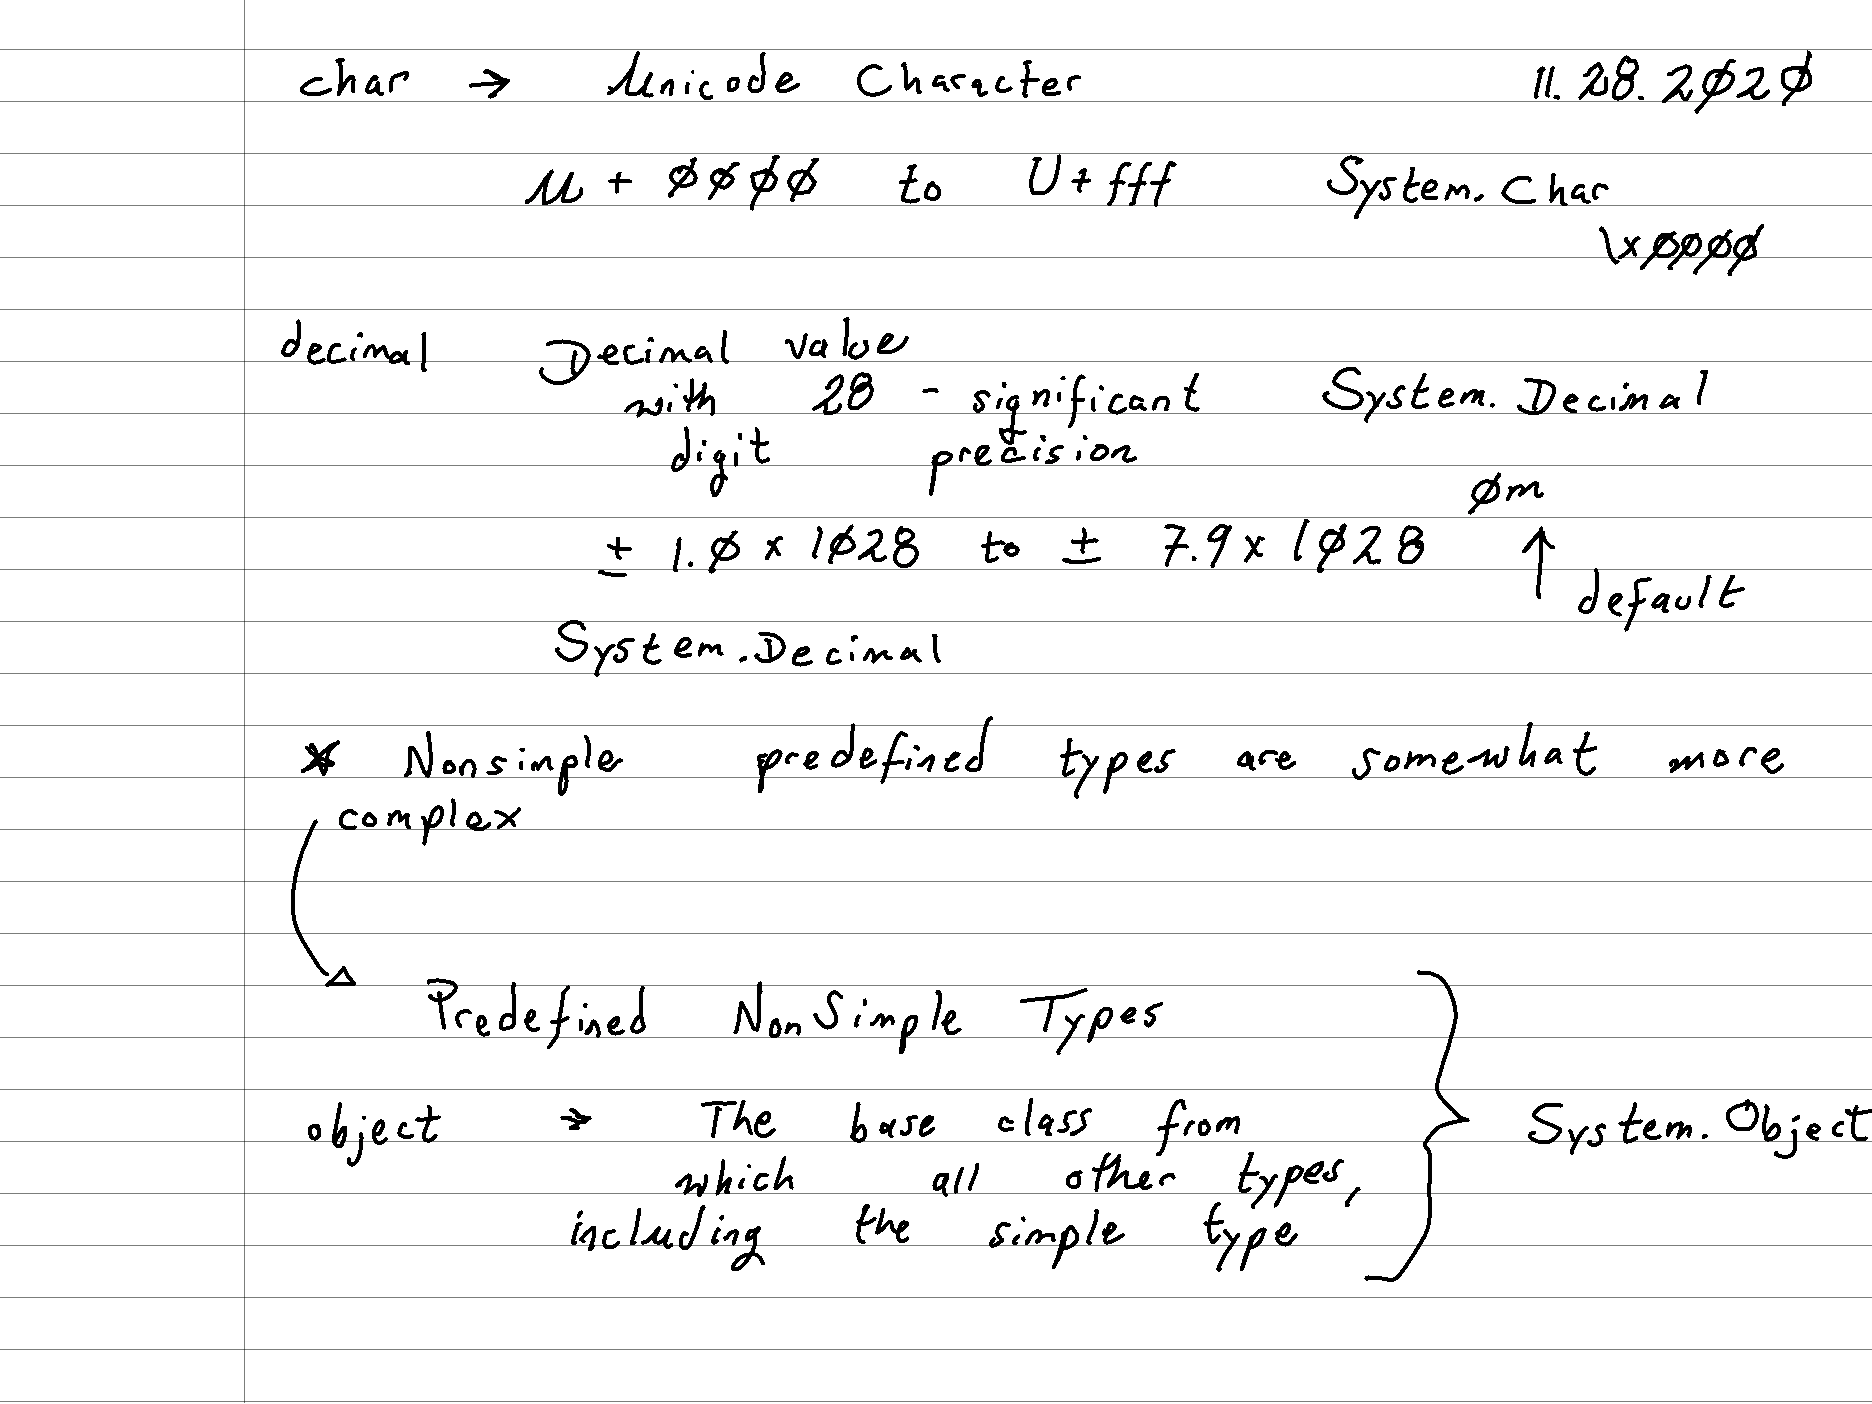 char → Unicode Character 11.28.2020
U + 0000 to U + fff System.Char
\x0000
decimal Decimal value
with 28 - significant System.Decimal
digit precision
0m
± 1.0 x 1028 to ± 7.9 x 1028 ↑
default
System.Decimal
* Nonsimple predefined types are somewhat more
complex
Predefined NonSimple Types
object → The base class from System.Object
which all other types,
including the simple type